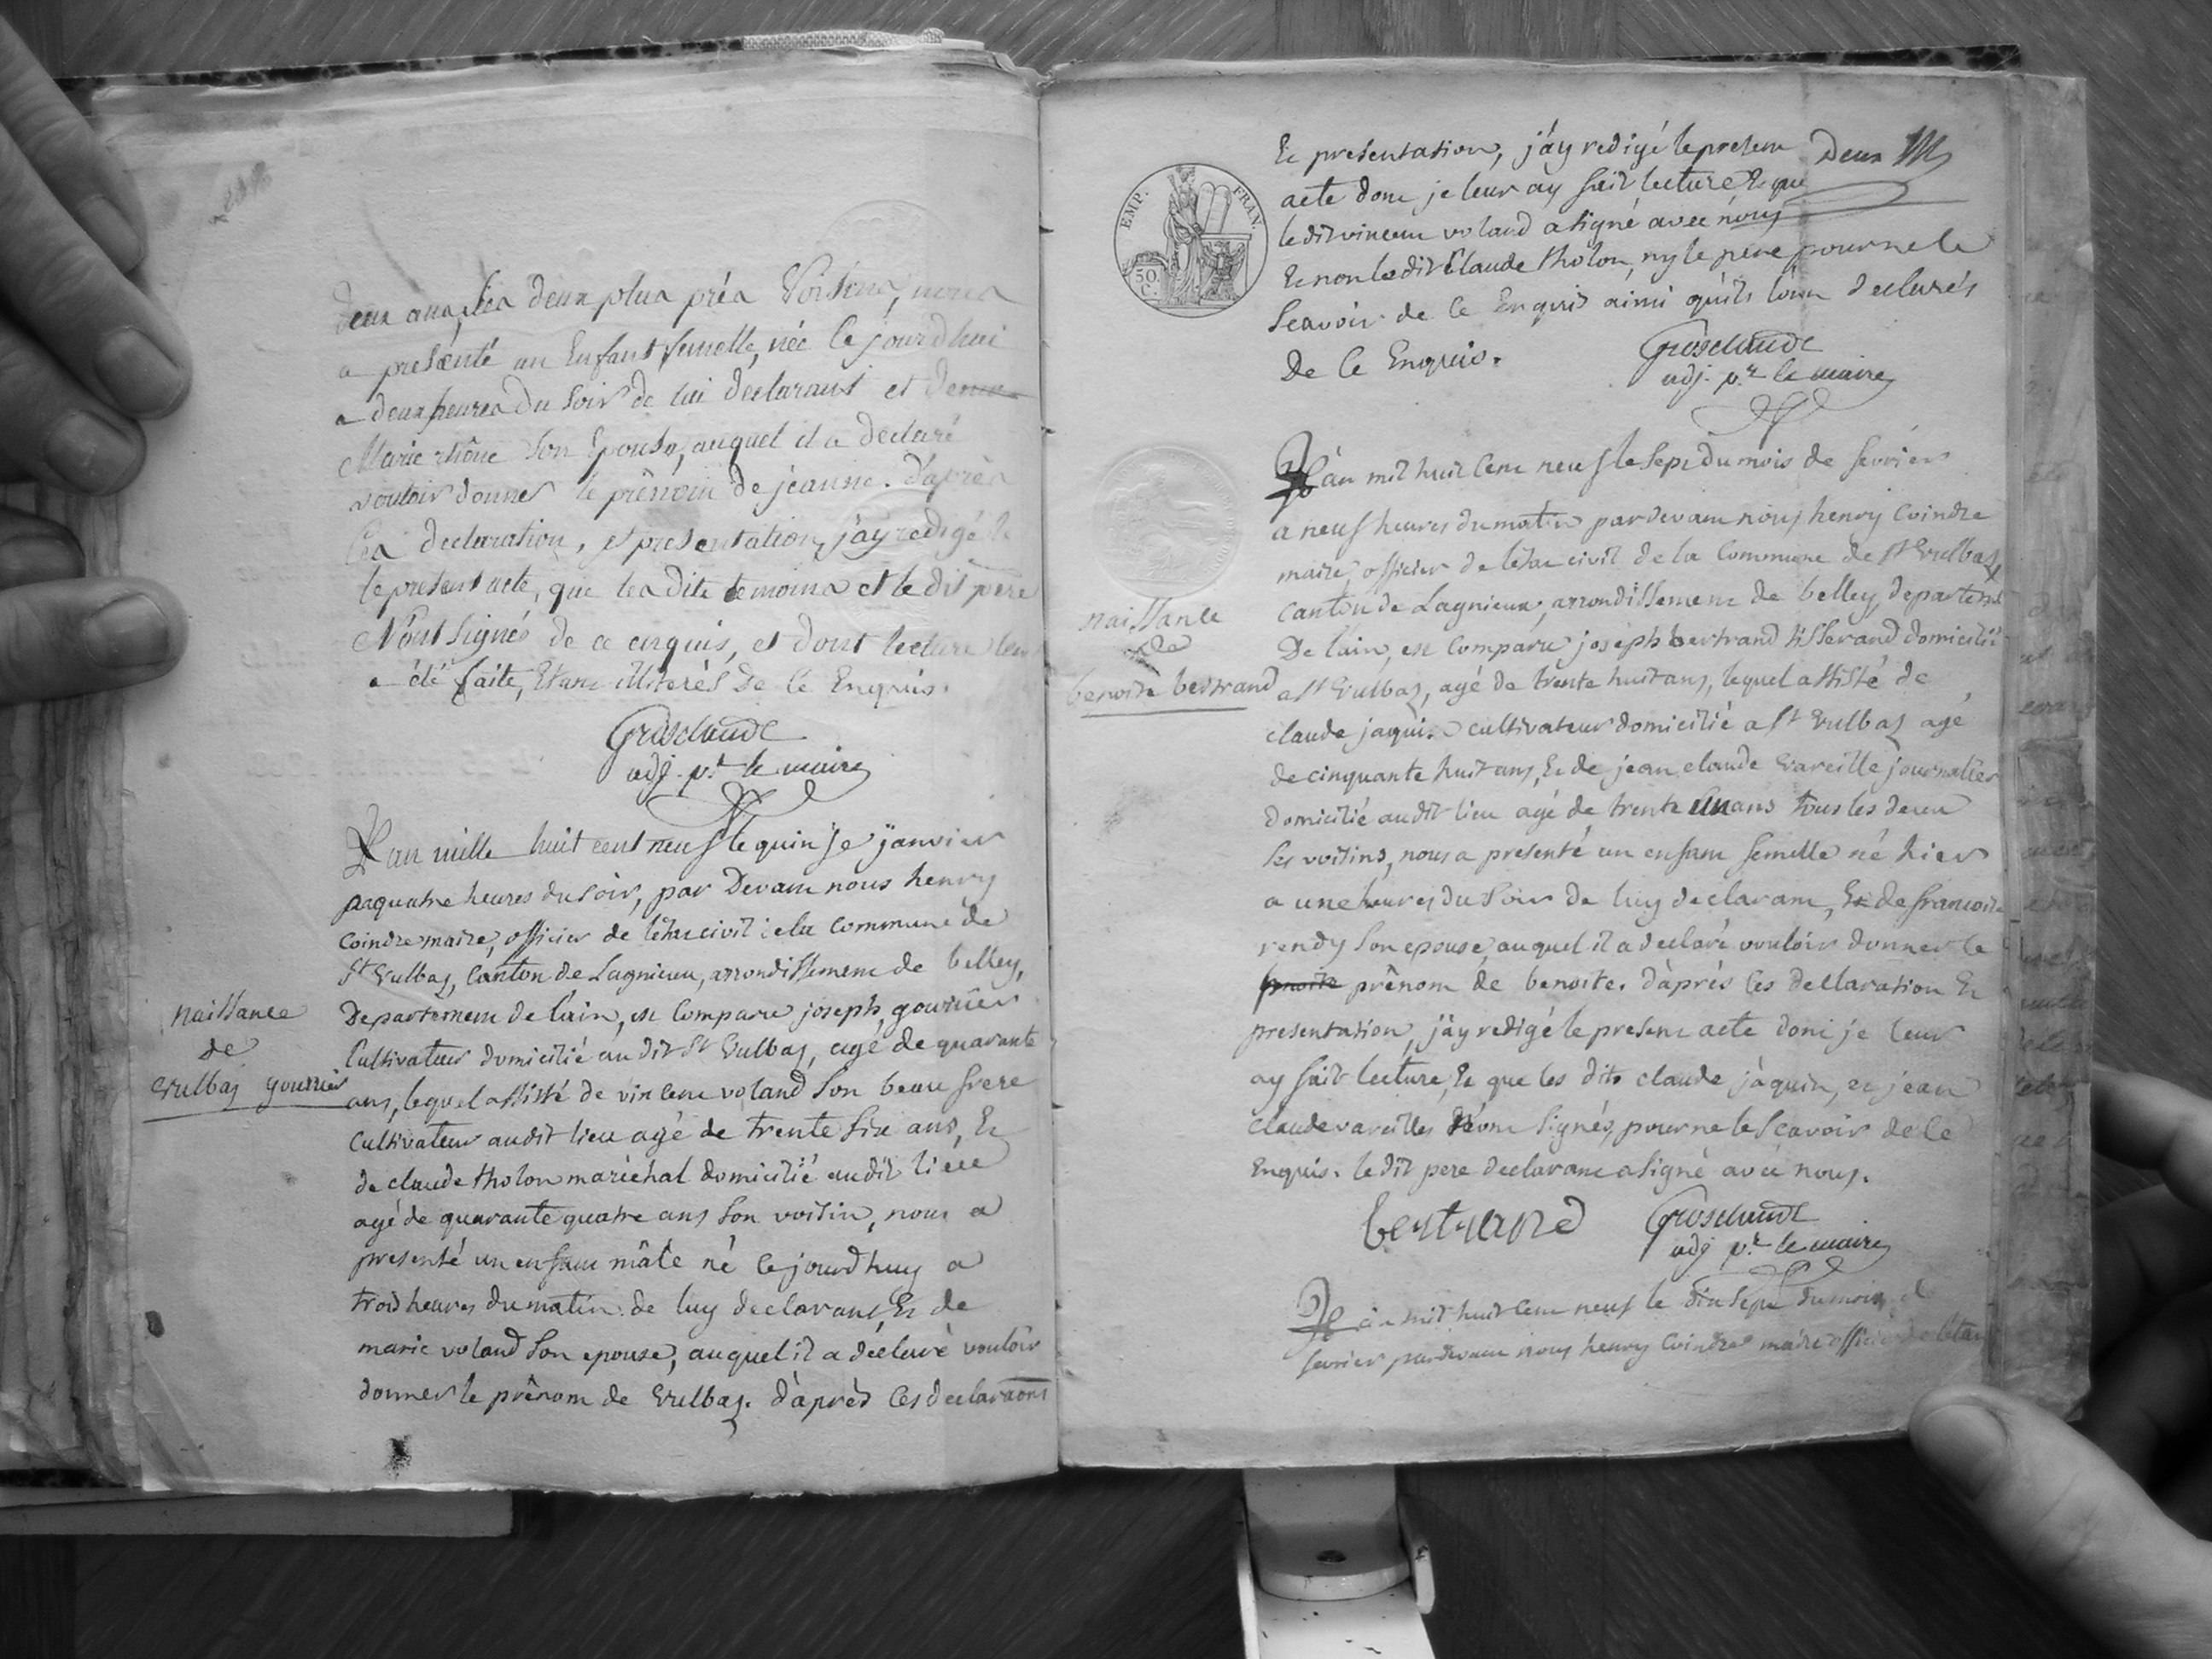 deux ans, les deux plus près Voisins, nous
a présenté un Enfant femelle, née ce jourd'hui
a deux heures du soir de lui declarant et de
Marie rhône son Epouse, auquel il a déclaré
vouloir donner le prénom de jeanne. d'après
ces declaration, et presentation, j'ay redigé le
le present acte, que les dits temoins et le dit père
N'ont signés de ce enquis, et dont lecture leur
a été faite, Etant illiterés de ce Enquis.
Grosclaude
adj. pr. le maire
L'an mille huit cent neuf le quinze janvier
a quatre heures du soir, par Devant nous henry
Coindre maire, officier de l'état civil de la commune de
St Vulbas, Canton de Lagnieux, arrondissement de belley,
Departement de l'ain, est Comparu joseph gourrier
Cultivateur domicilié au dit St Vulbas, agé de quarante
ans, lequel assisté de vincent voland son beau frere
Cultivateur audit lieu agé de trente six ans, Et
de claude tholon maréchal domicilié audit lieu
agé de quarante quatre ans son voisin, nous a
presenté un enfant mâle né cejourdhuy a
trois heures du matin de luy declarant, Et de
marie voland son epouse, auquel il a déclaré vouloir
donner le prênom de Vulbas. d'après ces declaraons
naissance
de
Vulbas gourrier
Et presentation, j'ay redigé le present
acte dont je leur ay fait lecture Et que
le dit vincent voland a signé avec nous
Et non le dit Claude tholon, ny le pere pour ne le
Scavoir de ce Enquis ainsi qu'ils l'ont declarés
De ce Enquis.
deux
EMP. FRAN.
50 C.
Grosclaude
adj. pr. le maire
L'an mil huit cent neuf le sept du mois de fevrier
a neuf heures du matin pardevant nous henry Coindre
maire, officier de l'état civil de la Commune de St Vulbas,
Canton de Lagnieux, arrondissement de belley, departemt
De l'ain, est Comparu joseph bertrand tisserand domicilié
a St Vulbas, agé de trente huit ans, lequel assisté de
claude jaquin cultivateur domicilié a St Vulbas agé
de cinquante huit ans, Et de jean claude Vareille journalier
Domicilié audit lieu agé de trente ans tous les deux
ses voisins, nous a presenté un enfant femelle né hier
a une heures du soir de luy declarant, Et de francoise
rendy son epouse, auquel il a declaré vouloir donner le
benoite prênom de benoite. d'après ces dellaration Et
presentation, j'ay redigé le present acte dont je leur
ay fait lecture, Et que les dits claude jaquin, et jean
claude vareilles N'ont signés, pour ne le Scavoir de ce
Enquis. le dit pere declarant a signé avec nous.
naissance
de
benoite bertrand
bertrand
Grosclaude
adj pr. le maire
L'an mil huit cent neuf le dix sept du mois de
fevrier pardevant nous henry Coindre maire officier de l'état